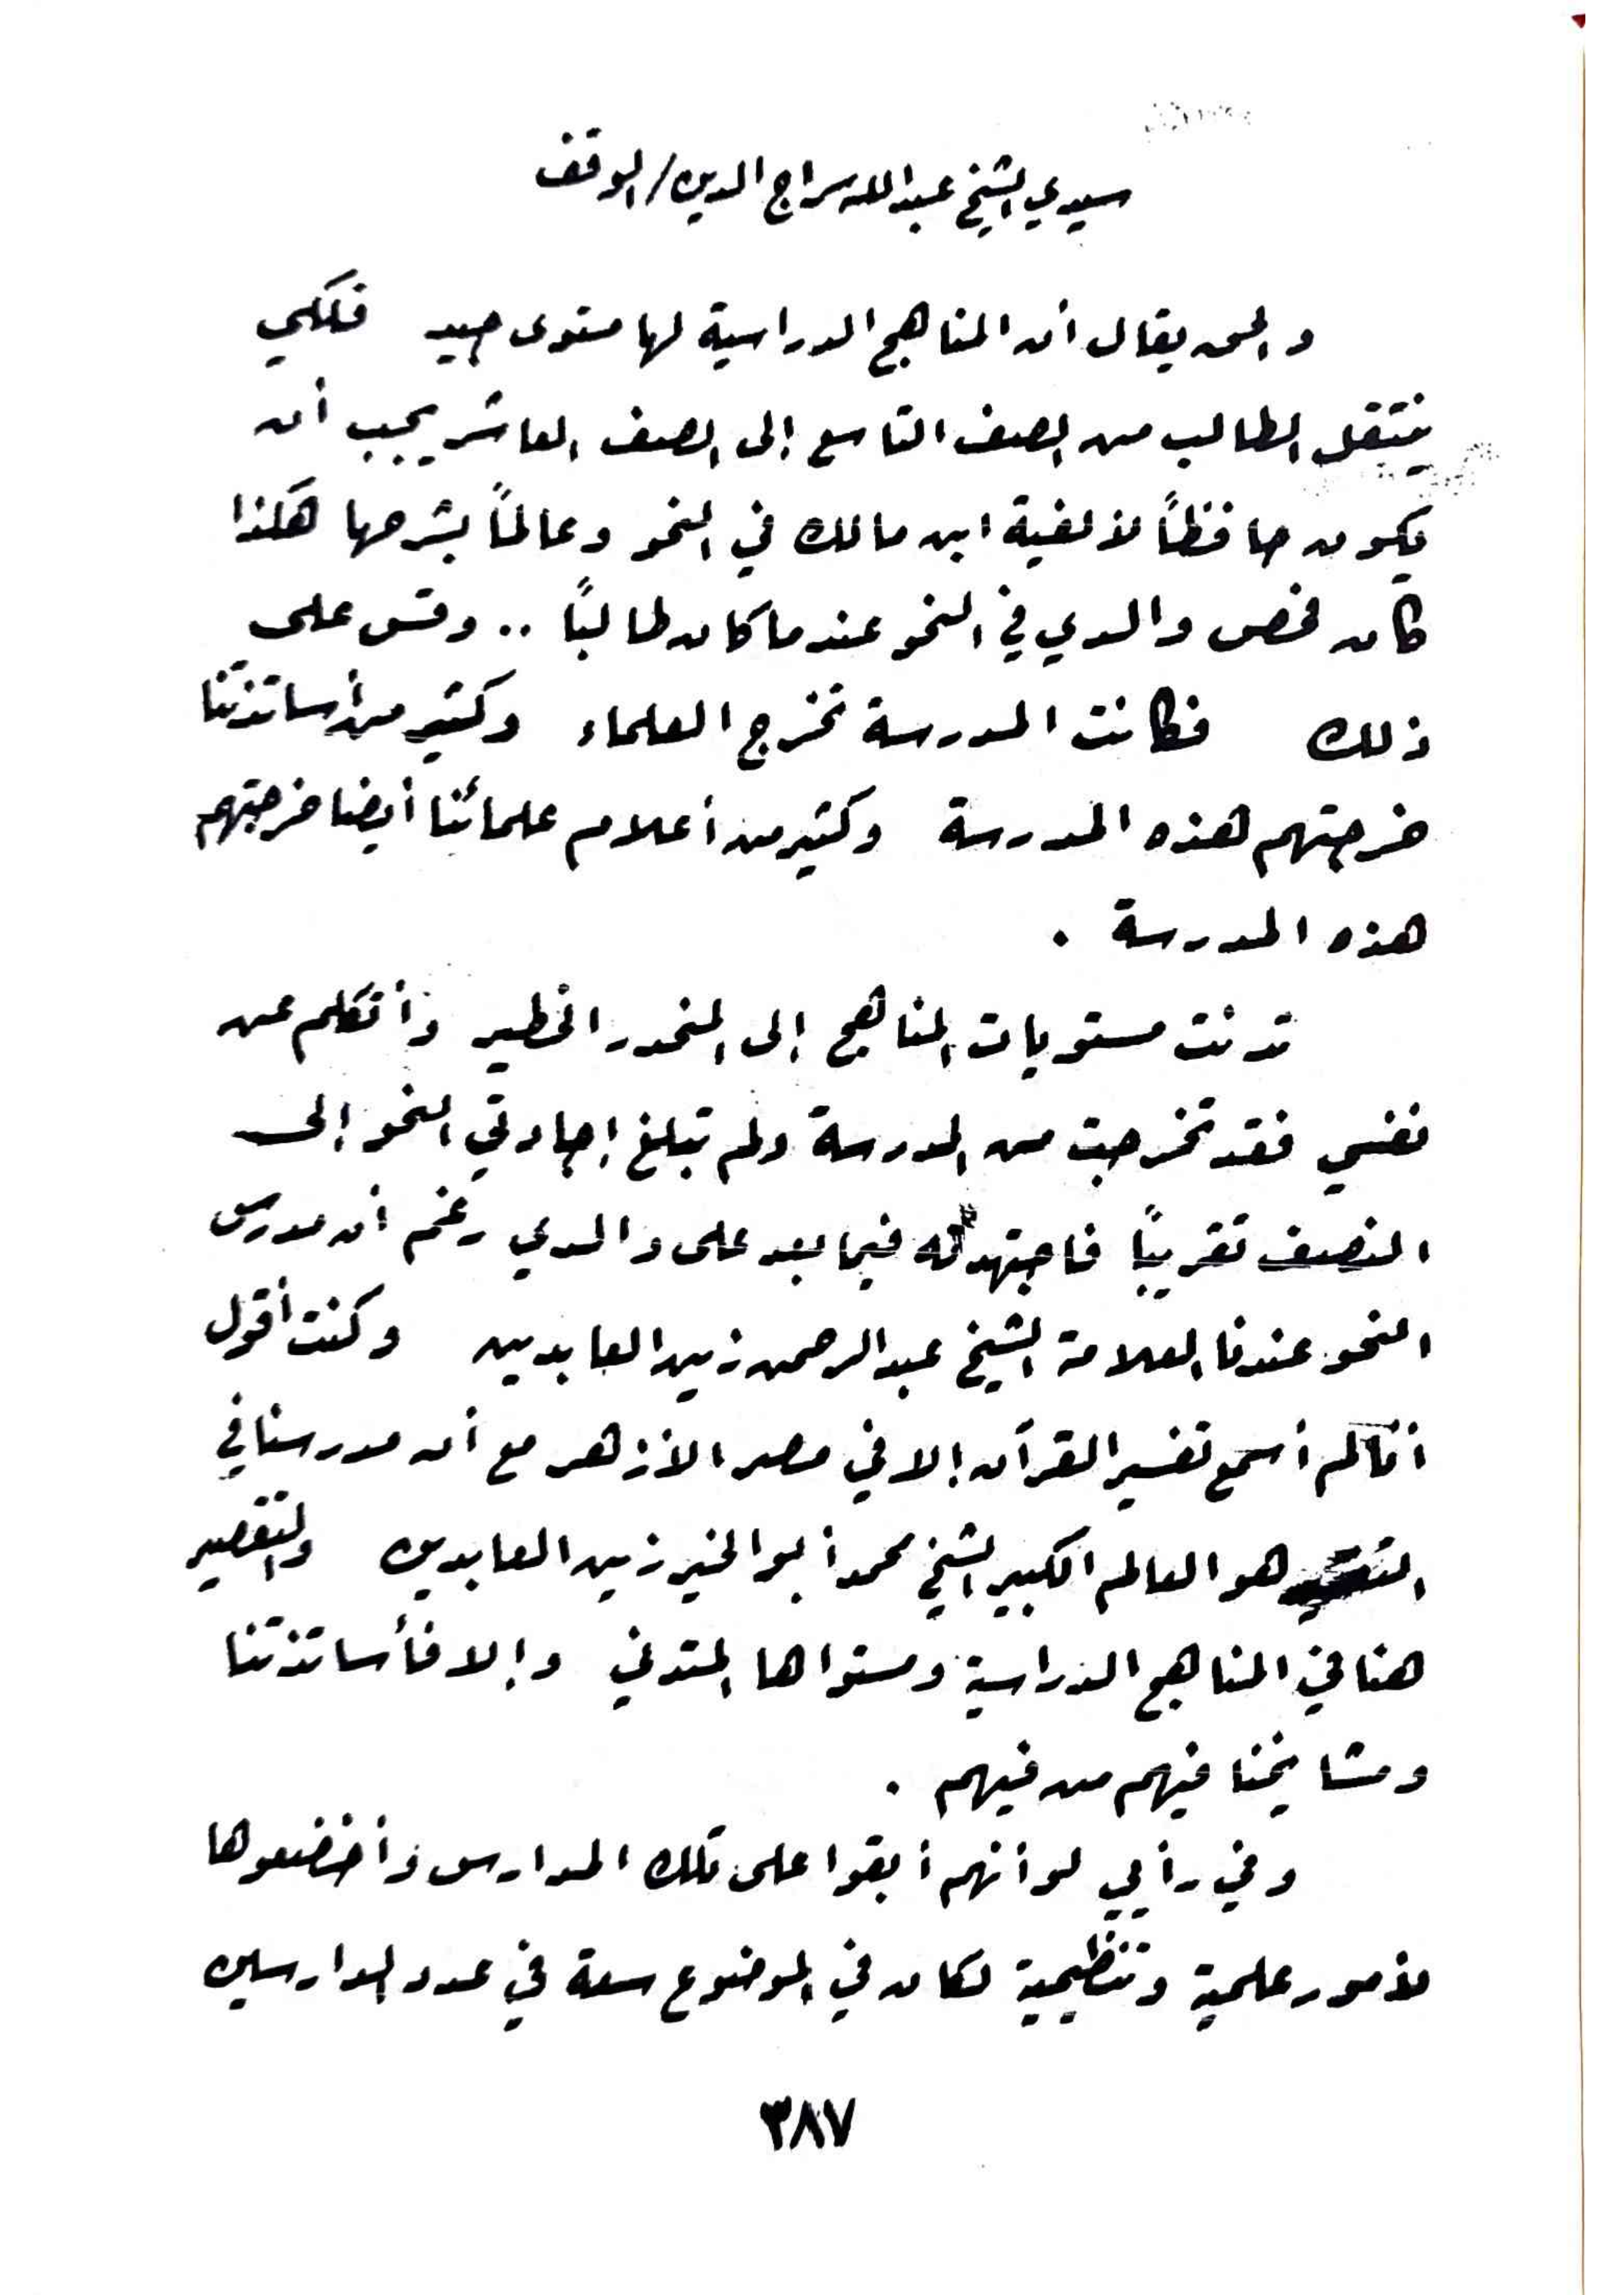 سيدي الشيخ عبدالله سراج الدين / الوقف
والحق يقال أن المناهج الدراسية لها مستوى جيد فلكي
ينتقل الطالب من الصف التاسع إلى الصف العاشر يجب أن
يكون حافظاً لألفية ابن مالك في النحو وعالماً بشرحها هكذا
كان فحص والدي في النحو عندما كان طالباً .. وقس على
ذلك فكانت المدرسة تخرج العلماء وكثير من أساتذتنا
خرجتهم هذه المدرسة وكثير من أعلام علمائنا أيضا خرجتهم
هذه المدرسة .
تدنت مستويات المناهج إلى المنحدر الخطير وأتكلم عن
نفسي فقد تخرجت من المدرسة ولم تبلغ إجادتي النحو إلى
النصف تقريباً فاجتهدت فيما بعد على والدي رغم أن مدرس
النحو عندنا العلامة الشيخ عبدالرحمن زين العابدين وكنت أقول
أنا لم أسمع تفسير القرآن إلا في مصر الأزهر مع أن مدرسنا في
هو العالم الكبير الشيخ محمد أبو الخير زين العابدين والتقصير
هنا في المناهج الدراسية ومستواها المتدني وإلا فأساتذتنا
ومشايخنا فيهم من فيهم .
وفي رأيي لو أنهم أبقوا على تلك المدارس وأخضعوها
لأمور علمية وتنظيمية لكان في الموضوع سعة في عدد الدارسين
٣٨٧